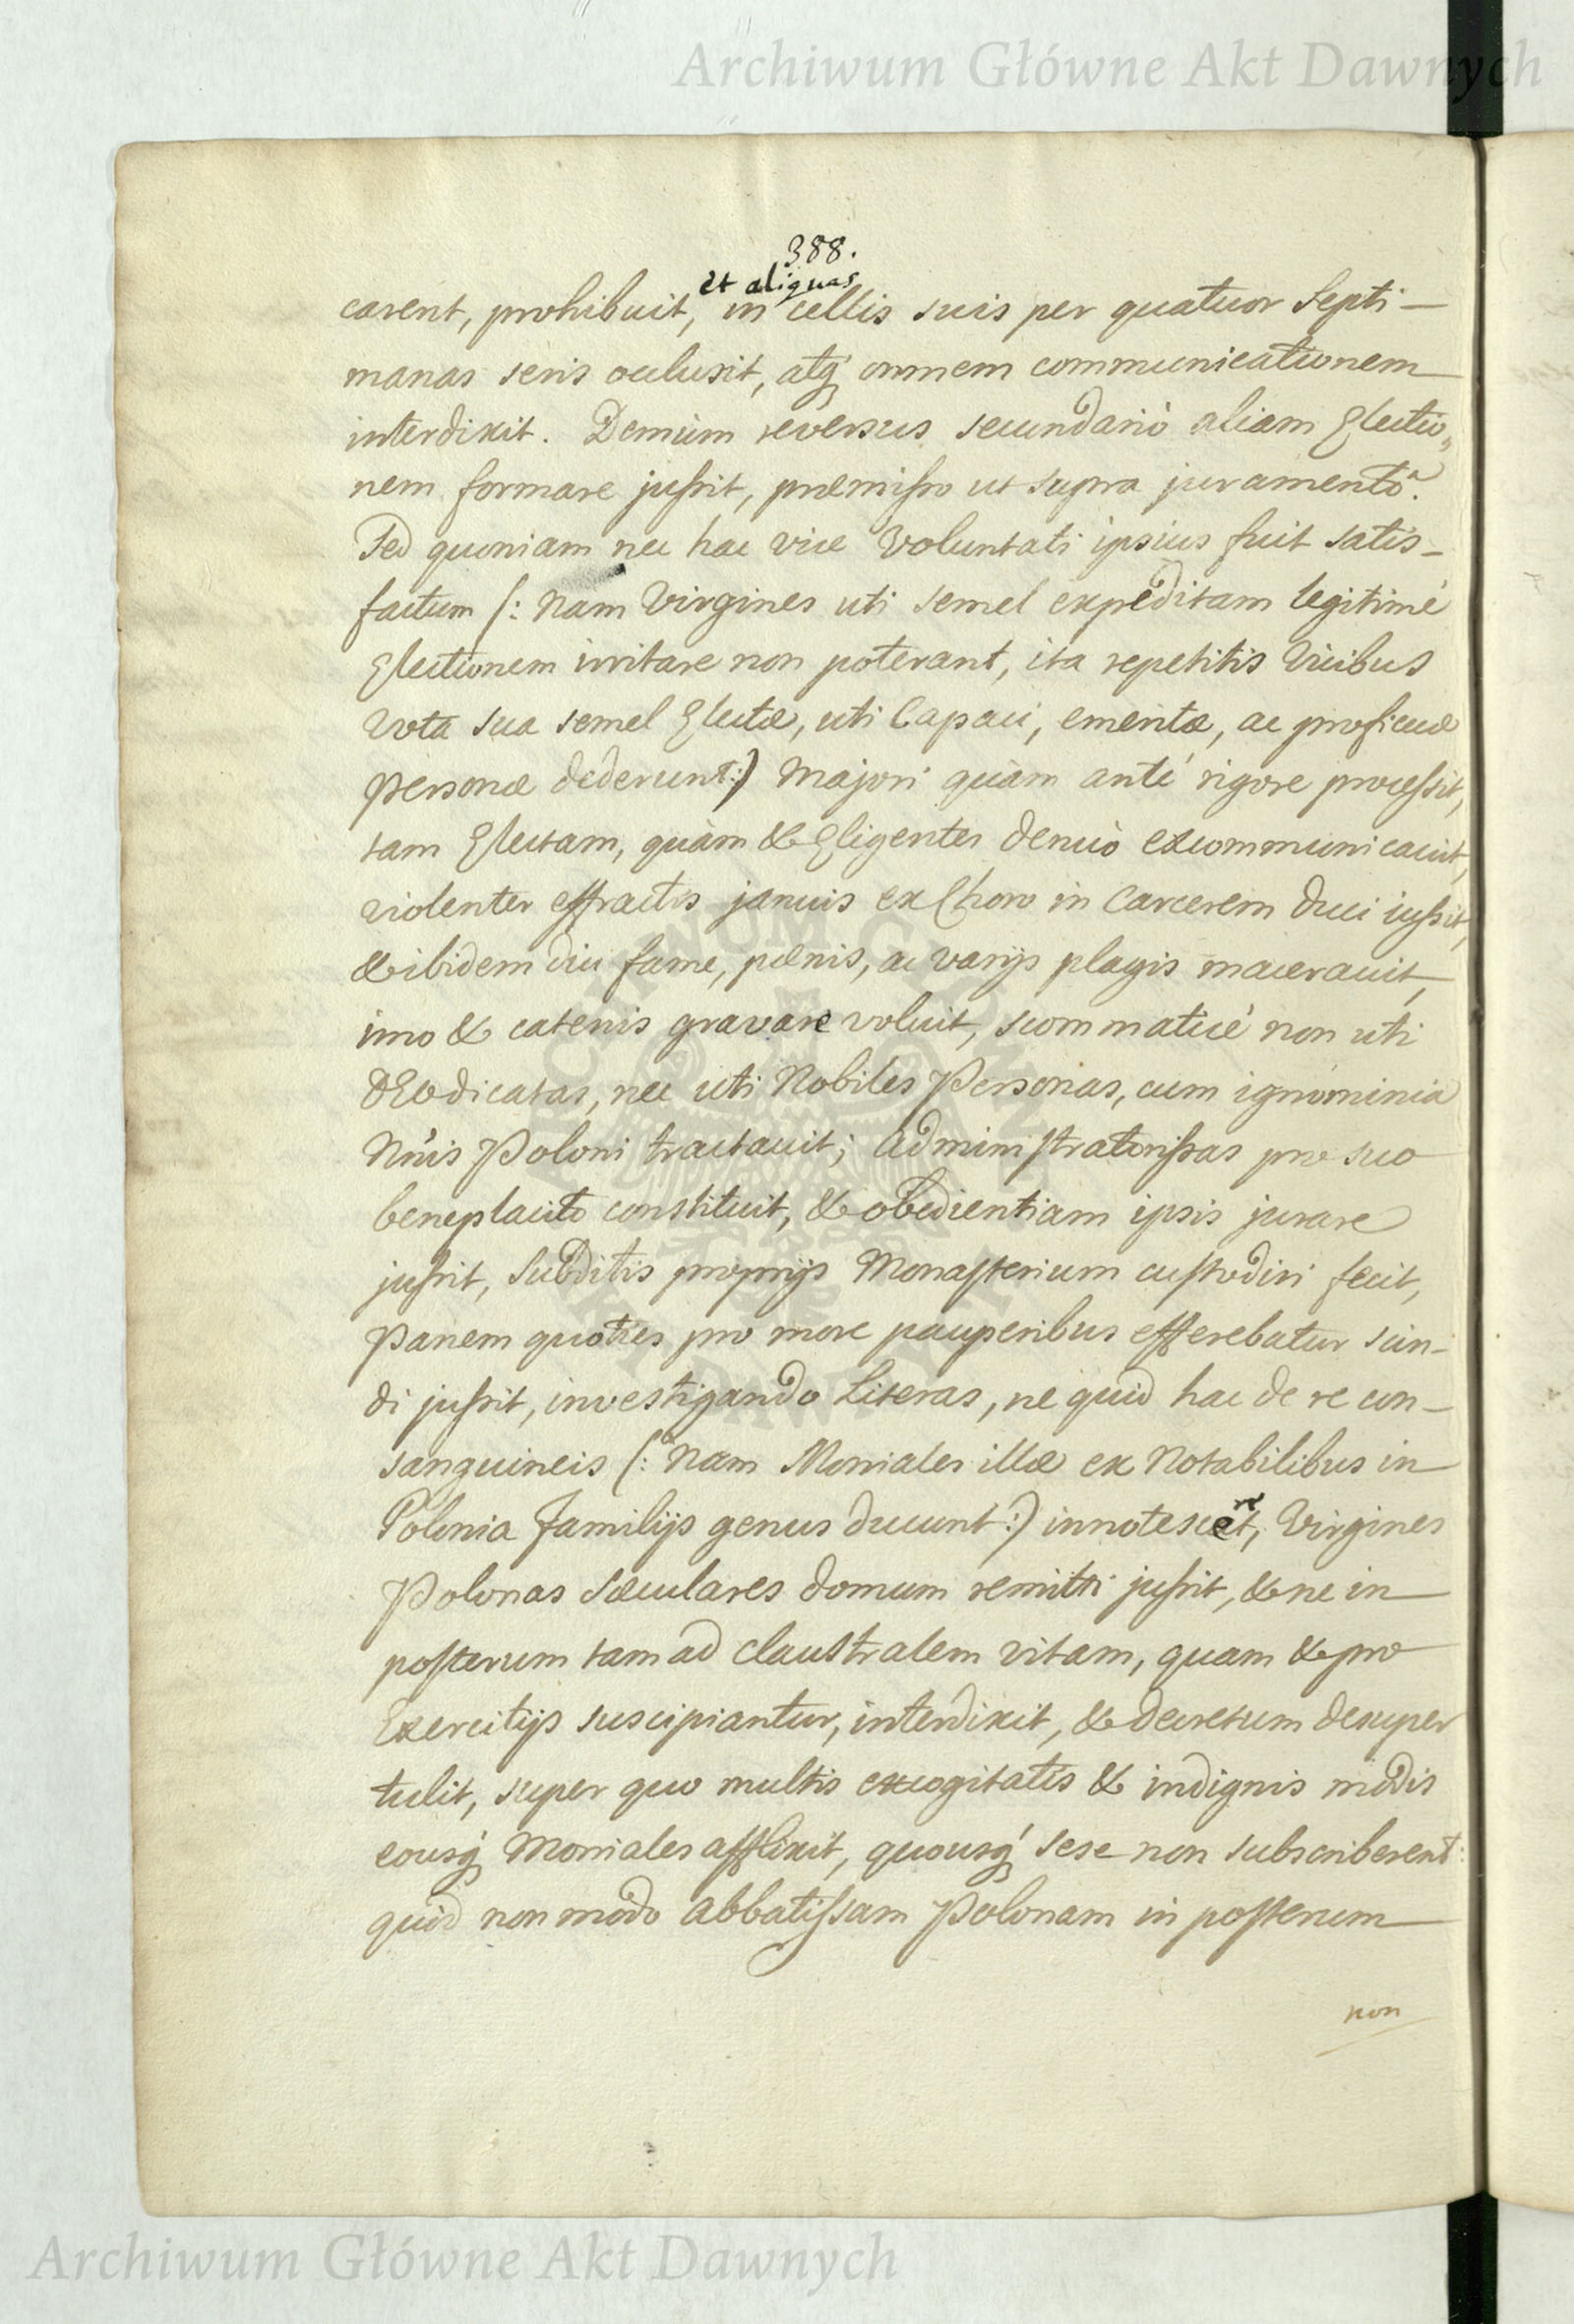 Archiwum Główne Akt Dawnych
388.
et aliquas
carent, prohibuit, in cellis suis per quatuor Septi—
manas seris occlusit, atq́ omnem communicationem
interdixit. Demùm reversus secundariò aliam Electio„
nem formare jußit, præmißo ut supra juramento.
Sed quoniam nec hac vice Voluntati ipsius fuit satis-
factum (: Nam Virgines uti semel expeditam legitimè
Electionem irritare non poterant, ita repetitis Vicibus
Vota sua semel Electæ, uti Capaci, emeritæ, ac proficuæ
Personæ dederunt:) Majori quàm antè rigore processit,
tam Electam, quàm & Eligentes denuò excommunicavit,
violenter effractis januis ex Choro in Carcerem duci iußit,
& ibidem diu fame, pœnis, ac varijs plagis maceravit,
imo & catenis gravare voluit, scommaticè non uti
DEO dicatas, nec uti Nobiles Personas, cum ignominia
Nńis Poloni tractavit; Administratorißas pro suo
beneplacito constituit, & obedientiam ipsis jurare
jußit, Subditis proprijs Monasterium custodiri fecit,
Panem quoties pro more pauperibus efferebatur scin-
di jußit, investigando Literas, ne quid hac de re con-
sanguineis (: Nam Moniales illæ ex Notabilibus in
Polonia Familijs genus ducunt:) innotesceret, Virgines
Polonas Sæculares domum remitti jußit, & ne in
posterum tam ad claustralem vitam, quam & pro
Exercitijs suscipiantur, interdixit, & decretum desuper
tulit, super quo multis excogitatis & indignis modis
eousq́ Moniales afflixit, quousq́ sese non subscriberent:
quid non modo Abbatissam Polonam in posterum
non
Archiwum Główne Akt Dawnych